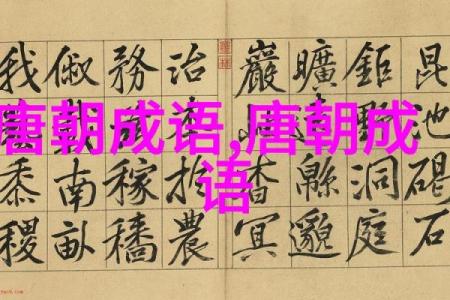 唐朝成语,唐朝成
语
昆池碣石
鉅野洞庭
曠遠緜邈
巖杳冥
治扵農
務稼穡
俶南畝
我黍稷